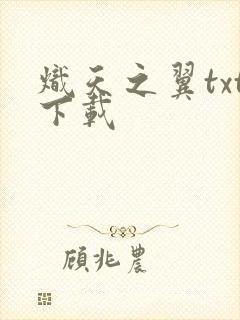 熾天之翼txt
下載
顧兆農